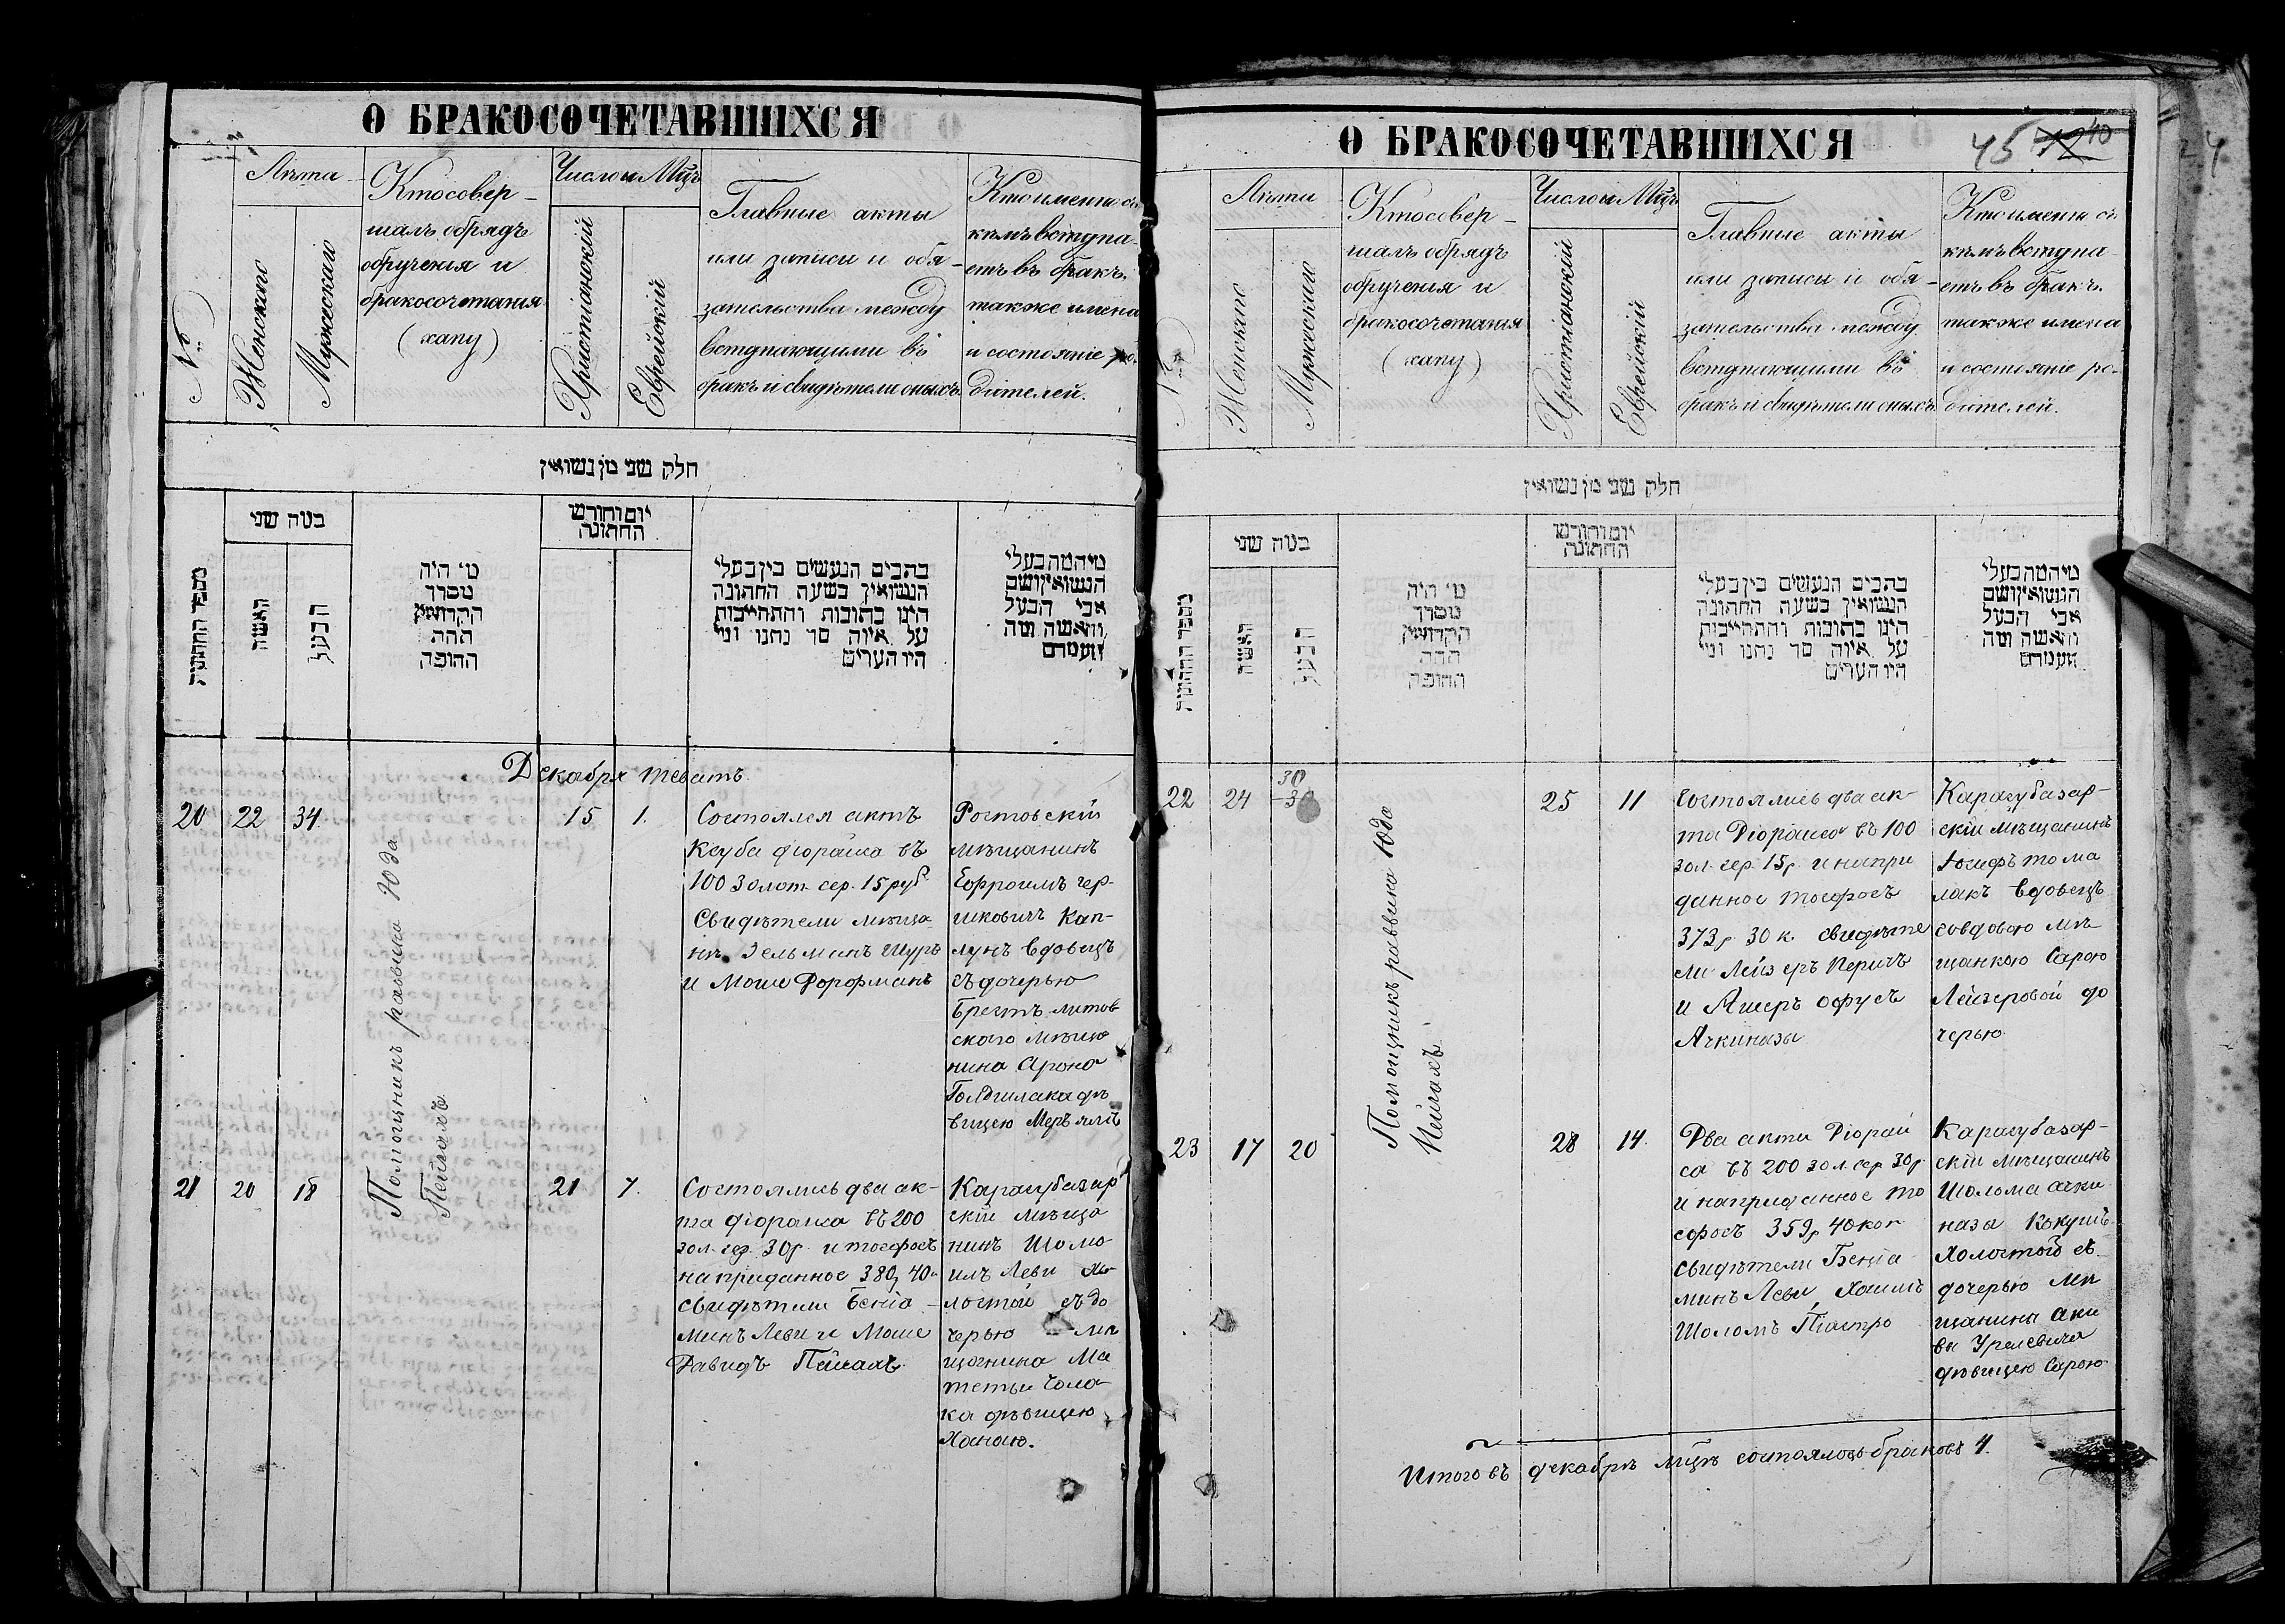 О БРАКОСОЧЕТАВШИХСЯ
№
Лѣта
Женскаго
Мужескаго
Кто совер-
шалъ обрядъ
обрученія и
бракосочетанія
(хапу)
Число и Мцъ
Христіанскій
Еврейскій
Главные акты
или записи и обя-
зательства между
вступающими въ
бракъ и свидѣтели оныхъ.
Кто именно съ
кѣмъ вступа-
етъ въ бракъ.
также имена
и состояніе ро-
дителей.
חלק שני מן נשואין
מספר החתונות
כמה שני
האשה
הבעל
מי היה
מסדר
הקדושין
תחת
החופה
יום וחודש
החתונה
כתבים הנעשים בין בעלי
הנשואין בשעת החתונה
היינו כתובות והתחייבות
על איזה סך נתנו ומי
היו העדים
מי המה בעלי
הנשואין ושם
אבי הבעל
והאשה ומה
מעמדם
Декабря теватъ.
20 22 34 15 1.
Помощникъ раввина Юда
Пейсахъ
Состоялся актъ
Ксуба діораиса въ
100 золот. сер. 15 руб.
Свидѣтели мѣща-
нѣ. Зельманъ Шуръ
и Моше Форфманъ
Ростовскій
мѣщанинъ
Ефроимъ Гер-
шковичъ Кап-
лунъ вдовецъ
съ дочерью
Брестъ литов
скаго мѣща
нина Арона
дѣ
вицею Меръямъ
21 20 18 21 7.
Состоялись два ак-
та діораиса въ 200
зол. сер. 30р. и тосфосъ
на приданное 380р 40к
свидѣтели Бенiа-
минъ Леви и Моше
Давидъ Пейсахъ.
Карасубазар
скій мѣща
нинъ Шомо
илъ Леви хо-
лостой съ до
черью мѣ
щанина Ма
тетьи Чола
ка дѣвицею
Ханою.
О БРАКОСОЧЕТАВШИХСЯ
45
№
Лѣта
Женскаго
Мужескаго
Кто совер-
шалъ обрядъ
обрученія и
бракосочетанія
(хапу)
Число и Мцъ
Христіанскій
Еврейскій
Главные акты
или записи и обя-
зательства между
вступающими въ
бракъ и свидѣтели оныхъ.
Кто именно съ
кѣмъ вступа-
етъ въ бракъ.
также имена
и состояніе ро-
дителей.
חלק שני מן נשואין
מספר החתונות
כמה שני
האשה
הבעל
מי היה
מסדר
הקדושין
תחת
החופה
יום וחודש
החתונה
כתבים הנעשים בין בעלי
הנשואין בשעת החתונה
היינו כתובות והתחייבות
על איזה סך נתנו ומי
היו העדים
מי המה בעלי
הנשואין ושם
אבי הבעל
והאשה ומה
מעמדם
30
22 24 30 25 11
Помощникъ раввина Юда
Пейсахъ.
Состоялись два ак-
та Діораиса въ 100
зол. сер. 15р. и на при
данное тосфосъ
373р. 30 к. свидѣте
ли Лейзеръ Перичъ
и Ашеръ Офусъ
Ачкинази
Карасубазар-
скій мѣщанинъ
Іосифъ Тома
лакъ вдовецъ
со вдовою мѣ
щанкою Сарою
Лейзеровой до
черью
23 17 20 28 14.
Два акта Діораи
са въ 200 зол. сер 30р.
и на приданное то
сфосъ 359р 40 коп
свидѣтели Беніа
минъ Леви, Хаимъ
Шоломъ Піастро
Карасубазар-
скій мѣщанинъ
Шолома Ачки
нази Кокушъ
Холостой съ
дочерью мѣ
щанина Аки
вы Урилевича
дѣвицею Сарою
Итого въ декабрѣ мцѣ состоялось браковъ 4.